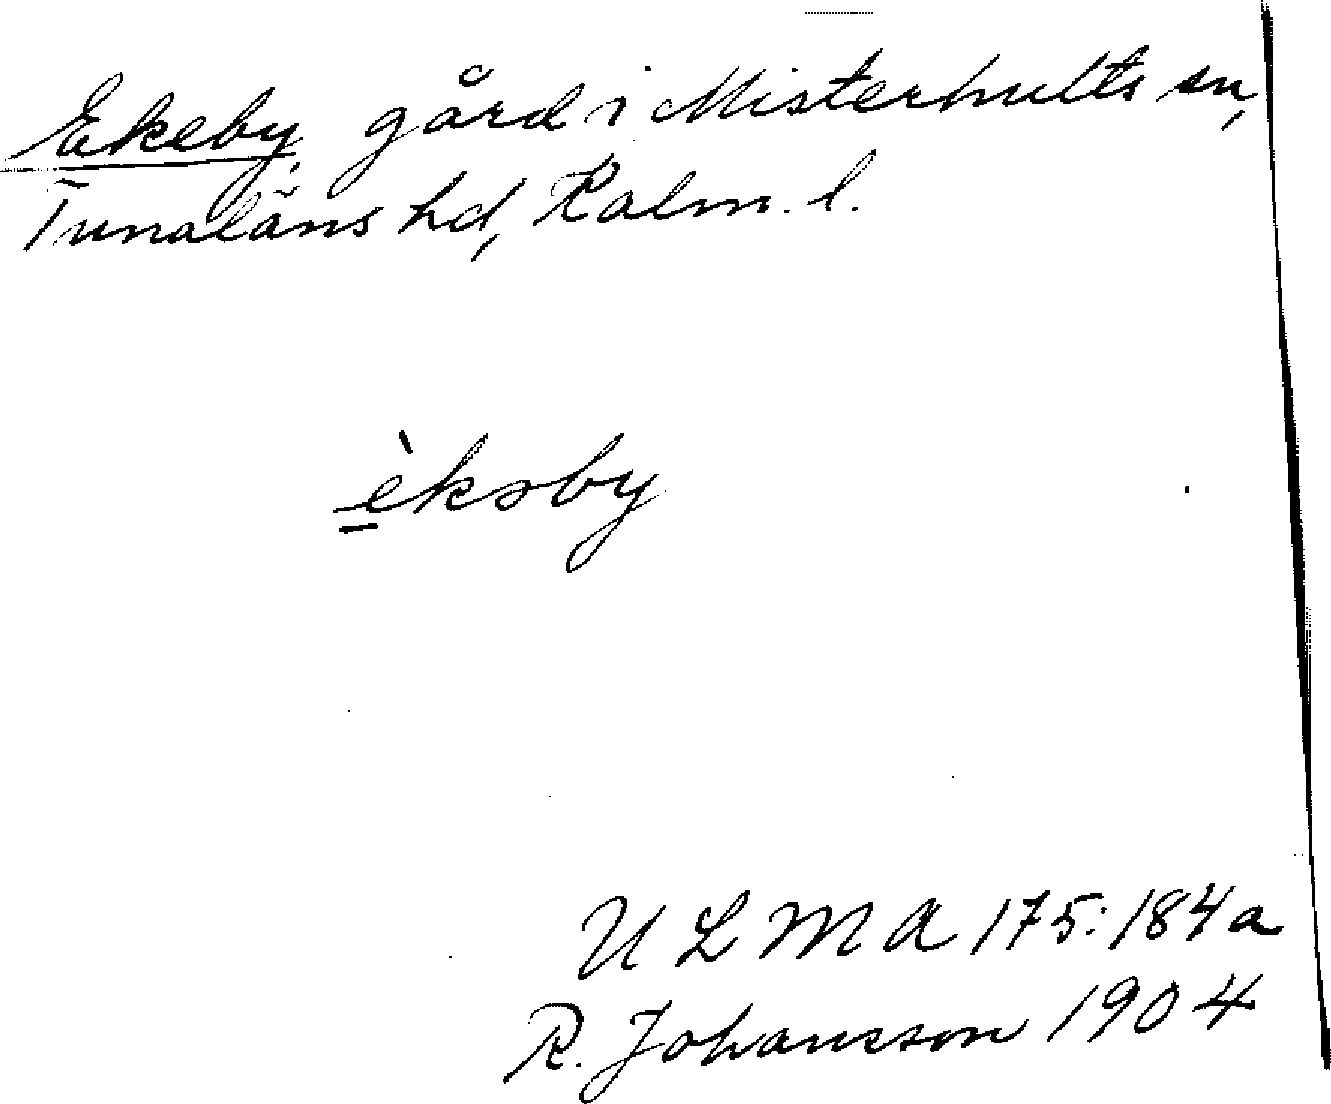 Ekeby, gård i Misterhults sn,
Tunaläns hd, Kalm. l.
èkəby
ULMA 175:184a
R. Johansson 1904